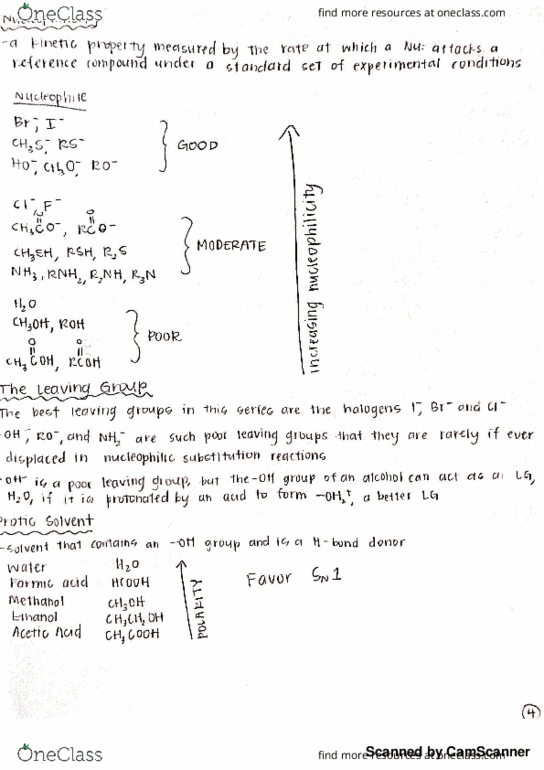 OneClass
find more resources at oneclass.com
-a kinetic property measured by the rate at which a Nu: attacks a
reference compound under a standard set of experimental conditions
Nucleophile
Br⁻, I⁻
CH₃S⁻, RS⁻
HO⁻, CH₃O⁻, RO⁻
GOOD
Cl⁻, F⁻
O O
CH₃CO⁻, RCO⁻
CH₃SH, RSH, R₂S
NH₃, RNH₂, R₂NH, R₃N
MODERATE
H₂O
CH₃OH, ROH
O O
CH₃COH, RCOH
POOR
increasing nucleophilicity
The Leaving Group
The best leaving groups in this series are the halogens I⁻, Br⁻ and Cl⁻
OH⁻, RO⁻, and NH₂⁻ are such poor leaving groups that they are rarely if ever
displaced in nucleophilic substitution reactions
OH⁻ is a poor leaving group, but the -OH group of an alcohol can act as a LG,
H₂O, if it is protonated by an acid to form -OH₂⁺, a better LG
Protic Solvent
-solvent that contains an -OH group and is a H-bond donor
Water H₂O
Formic acid HCOOH
Methanol CH₃OH
Ethanol CH₃CH₂OH
Acetic Acid CH₃COOH
POLARITY
Favor SN1
4
OneClass
find more resources at oneclass.com
Scanned by CamScanner